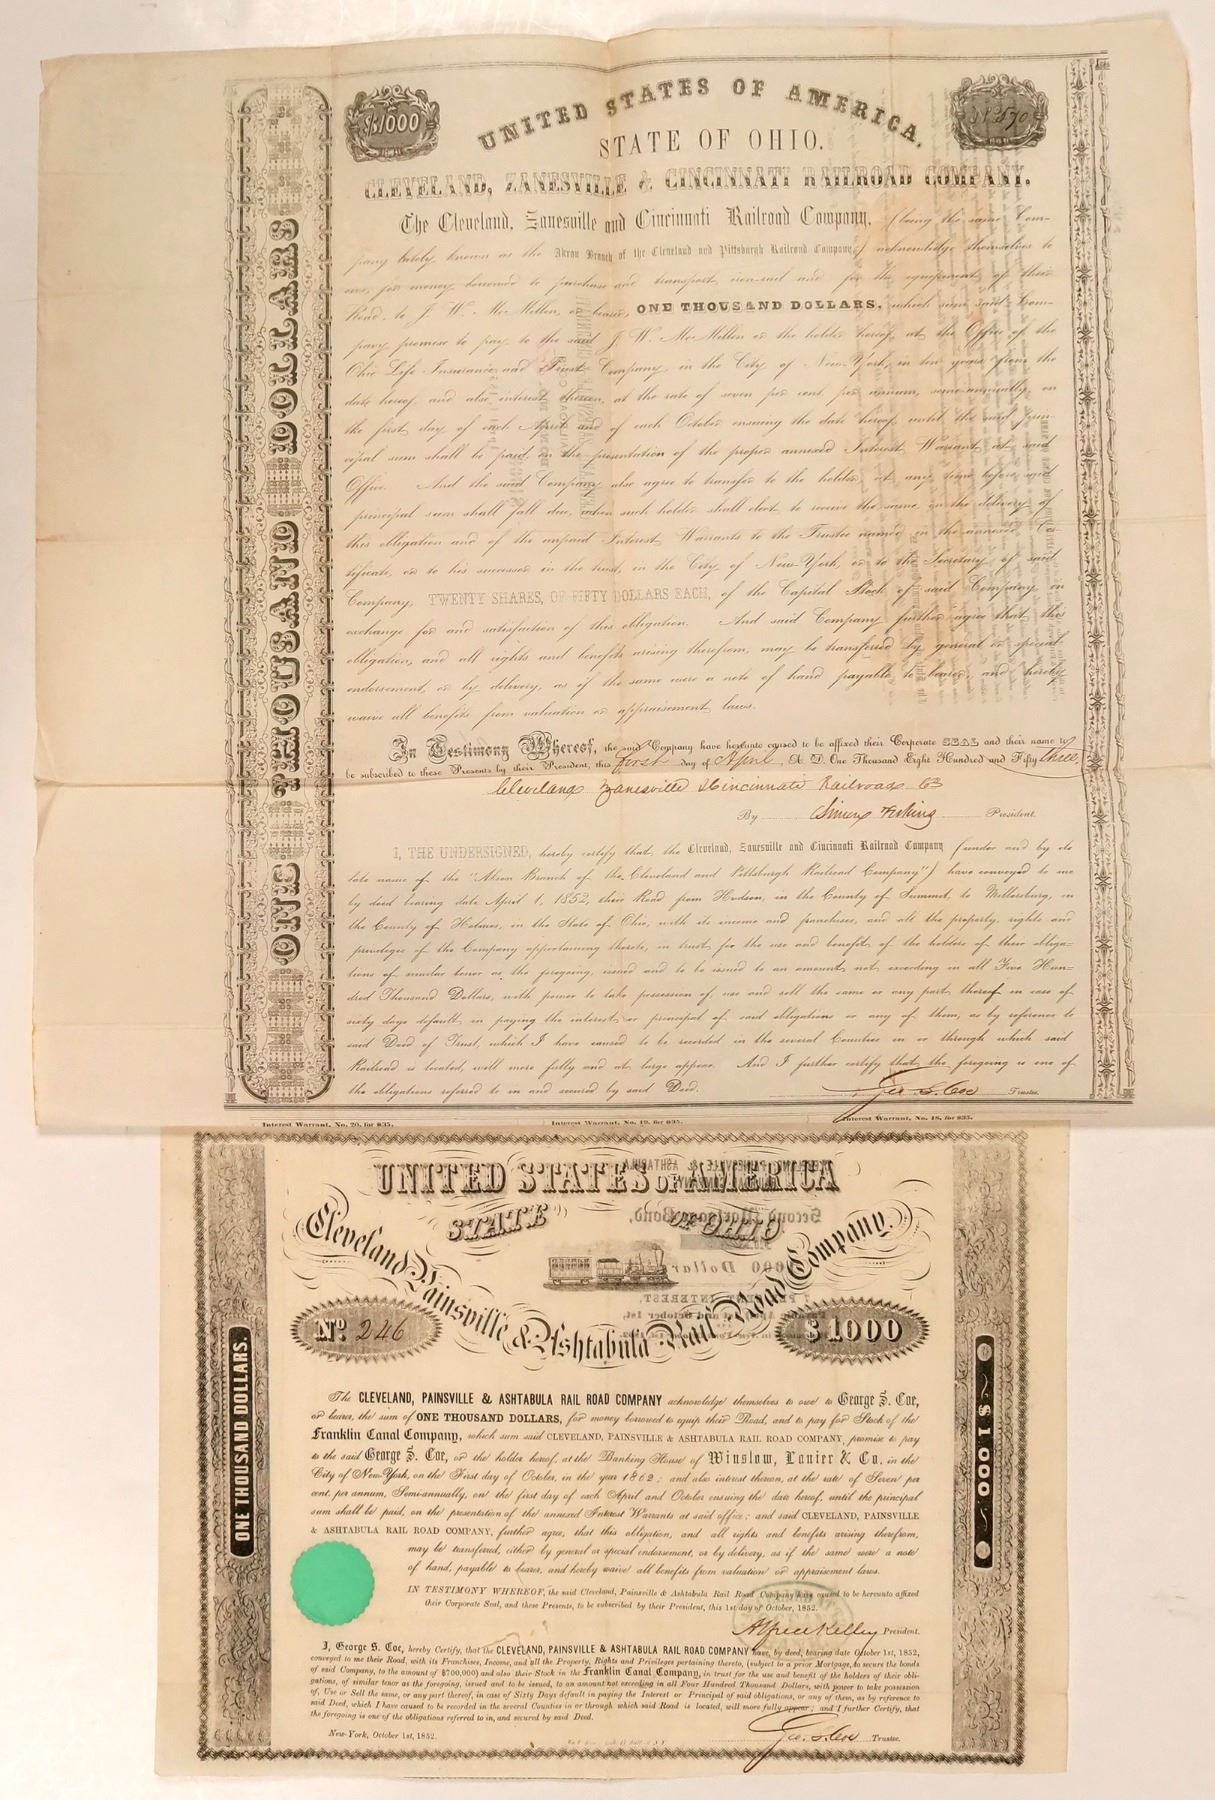 $1000
UNITED STATES OF AMERICA.
No. 570
STATE OF OHIO.
CLEVELAND, ZANESVILLE & CINCINNATI RAILROAD COMPANY.
ONE THOUSAND DOLLARS
The Cleveland, Zanesville and Cincinnati Railroad Company, (being the same Com-
pany lately known as the Akron Branch of the Cleveland and Pittsburgh Railroad Company,) acknowledge themselves to
owe, for money borrowed to purchase and transport iron-rail and for the equipment of their
Road, to J. W. McMillen, or bearer, ONE THOUSAND DOLLARS, which sum said Com-
pany promise to pay to the said J. W. McMillen or the holder hereof, at the Office of the
Ohio Life Insurance and Trust Company, in the City of New-York, in ten years from the
date hereof, and also, interest thereon, at the rate of seven per cent. per annum, semi-annually, on
the first day of each April and of each October ensuing the date hereof, until the said prin-
cipal sum shall be paid, on the presentation of the proper annexed Interest Warrant at said
Office. And the said Company also agree to transfer to the holder, at any time before said
principal sum shall fall due, when such holder shall elect to receive the same, on the delivery of
this obligation and of the unpaid Interest Warrants to the Trustee named in the annexed Cer-
tificate, or to his successor in the trust, in the City of New-York, or to the Secretary of said
Company, TWENTY SHARES, OF FIFTY DOLLARS EACH, of the Capital Stock of said Company in
exchange for and satisfaction of this obligation. And said Company further agree that this
obligation, and all rights and benefits arising therefrom, may be transferred by general or special
endorsement, or by delivery, as if the same were a note of hand payable to bearer, and hereby
waive all benefits from valuation or appraisement laws.
In Testimony Whereof, the said Company have hereunto caused to be affixed their Corporate SEAL and their name to
be subscribed to these Presents by their President, this first day of April, A. D. One Thousand Eight Hundred and Fifty three,
Cleveland Zanesville & Cincinnati Railroad Co
By Simon Perkins President.
I, THE UNDERSIGNED, hereby certify that the Cleveland, Zanesville and Cincinnati Railroad Company (under and by its
late name of the "Akron Branch of the Cleveland and Pittsburgh Railroad Company") have conveyed to me
by deed bearing date April 1, 1852, their Road from Hudson, in the County of Summit, to Millersburg, in
the County of Holmes, in the State of Ohio, with its income and franchises, and all the property, rights and
privileges of the Company appertaining thereto, in trust for the use and benefit of the holders of their obliga-
tions of similar tenor as the foregoing, issued and to be issued to an amount not exceeding in all Five Hun-
dred Thousand Dollars, with power to take possession of, use and sell the same or any part thereof in case of
sixty days default in paying the interest or principal of said obligations or any of them, as by reference to
said Deed of Trust, which I have caused to be recorded in the several Counties in or through which said
Railroad is located, will more fully and at large appear. And I further certify that the foregoing is one of
the obligations referred to in and secured by said Deed.
Geo. S. Coe Trustee.
Interest Warrant, No. 20, for $35. Interest Warrant, No. 19, for $35. Interest Warrant, No. 18, for $35.
UNITED STATES OF AMERICA
STATE OF OHIO
Cleveland Painsville & Ashtabula Rail Road Company.
No. 246
$1000
ONE THOUSAND DOLLARS.
$1000
The CLEVELAND, PAINSVILLE & ASHTABULA RAIL ROAD COMPANY acknowledge themselves to owe to George S. Coe,
or bearer, the sum of ONE THOUSAND DOLLARS, for money borrowed to equip their Road, and to pay for Stock of the
Franklin Canal Company, which sum said CLEVELAND, PAINSVILLE & ASHTABULA RAIL ROAD COMPANY, promise to pay
to the said George S. Coe, or the holder hereof, at the Banking House of Winslow, Lanier & Co. in the
City of New-York, on the First day of October, in the year 1862; and also interest thereon, at the rate of Seven per
cent. per annum, Semi-annually, on the first day of each April and October ensuing the date hereof, until the principal
sum shall be paid, on the presentation of the annexed Interest Warrants at said office; and said CLEVELAND, PAINSVILLE
& ASHTABULA RAIL ROAD COMPANY, further agree, that this obligation, and all rights and benefits arising therefrom,
may be transferred, either by general or special endorsement, or by delivery, as if the same were a note
of hand, payable to bearer, and hereby waive all benefits from valuation or appraisement laws.
IN TESTIMONY WHEREOF, the said Cleveland, Painsville & Ashtabula Rail Road Company have caused to be hereunto affixed
their Corporate Seal, and these Presents, to be subscribed by their President, this 1st day of October, 1852.
Alfred Kelley President.
I, George S. Coe, hereby Certify, that the CLEVELAND, PAINSVILLE & ASHTABULA RAIL ROAD COMPANY have, by deed, bearing date October 1st, 1852,
conveyed to me their Road, with its Franchises, Income, and all the Property, Rights and Privileges pertaining thereto, (subject to a prior Mortgage, to secure the bonds
of said Company, to the amount of $700,000) and also their Stock in the Franklin Canal Company, in trust for the use and benefit of the holders of their obli-
gations, of similar tenor as the foregoing, issued and to be issued, to an amount not exceeding in all Four Hundred Thousand Dollars, with power to take possession
of, Use or Sell the same, or any part thereof, in case of Sixty Days default in paying the Interest or Principal of said obligations, or any of them, as by reference to
said Deed, which I have caused to be recorded in the several Counties in or through which said Road is located, will more fully appear; and I further Certify, that
the foregoing is one of the obligations referred to in, and secured by said Deed.
New-York, October 1st, 1852.
Geo. S. Coe Trustee.